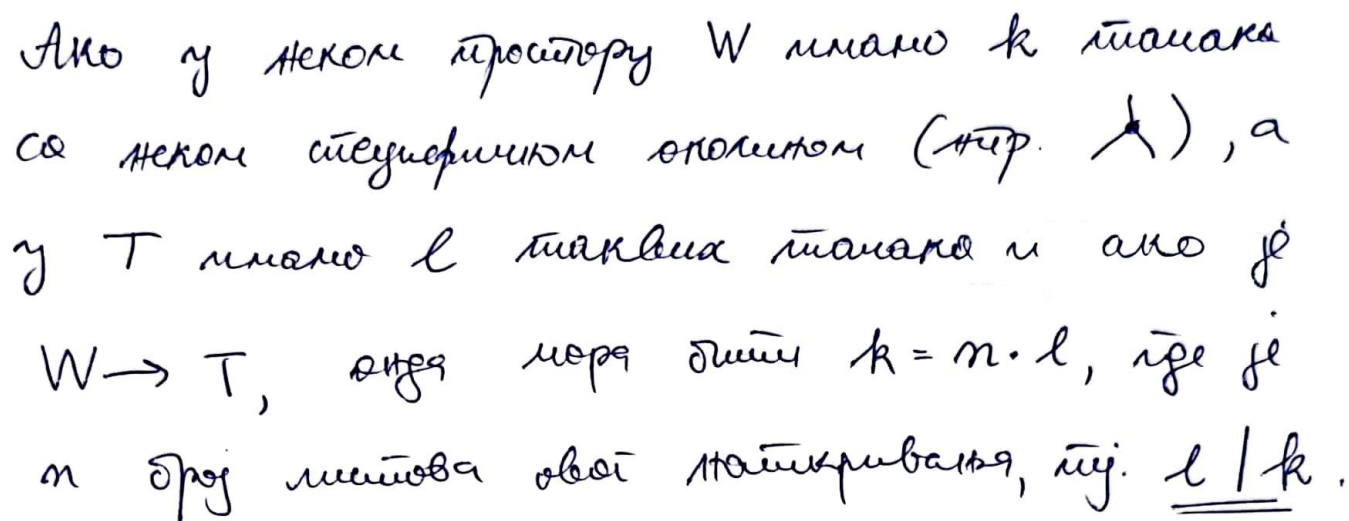 Ако у неком простору W имамо k тачака
са неком специфичном околином (нпр. ⅄), а
у T имамо l таквих тачака и ако је
W → T, онда мора бити k = n · l, где је
n број листова овог наткривања, тј. l | k.